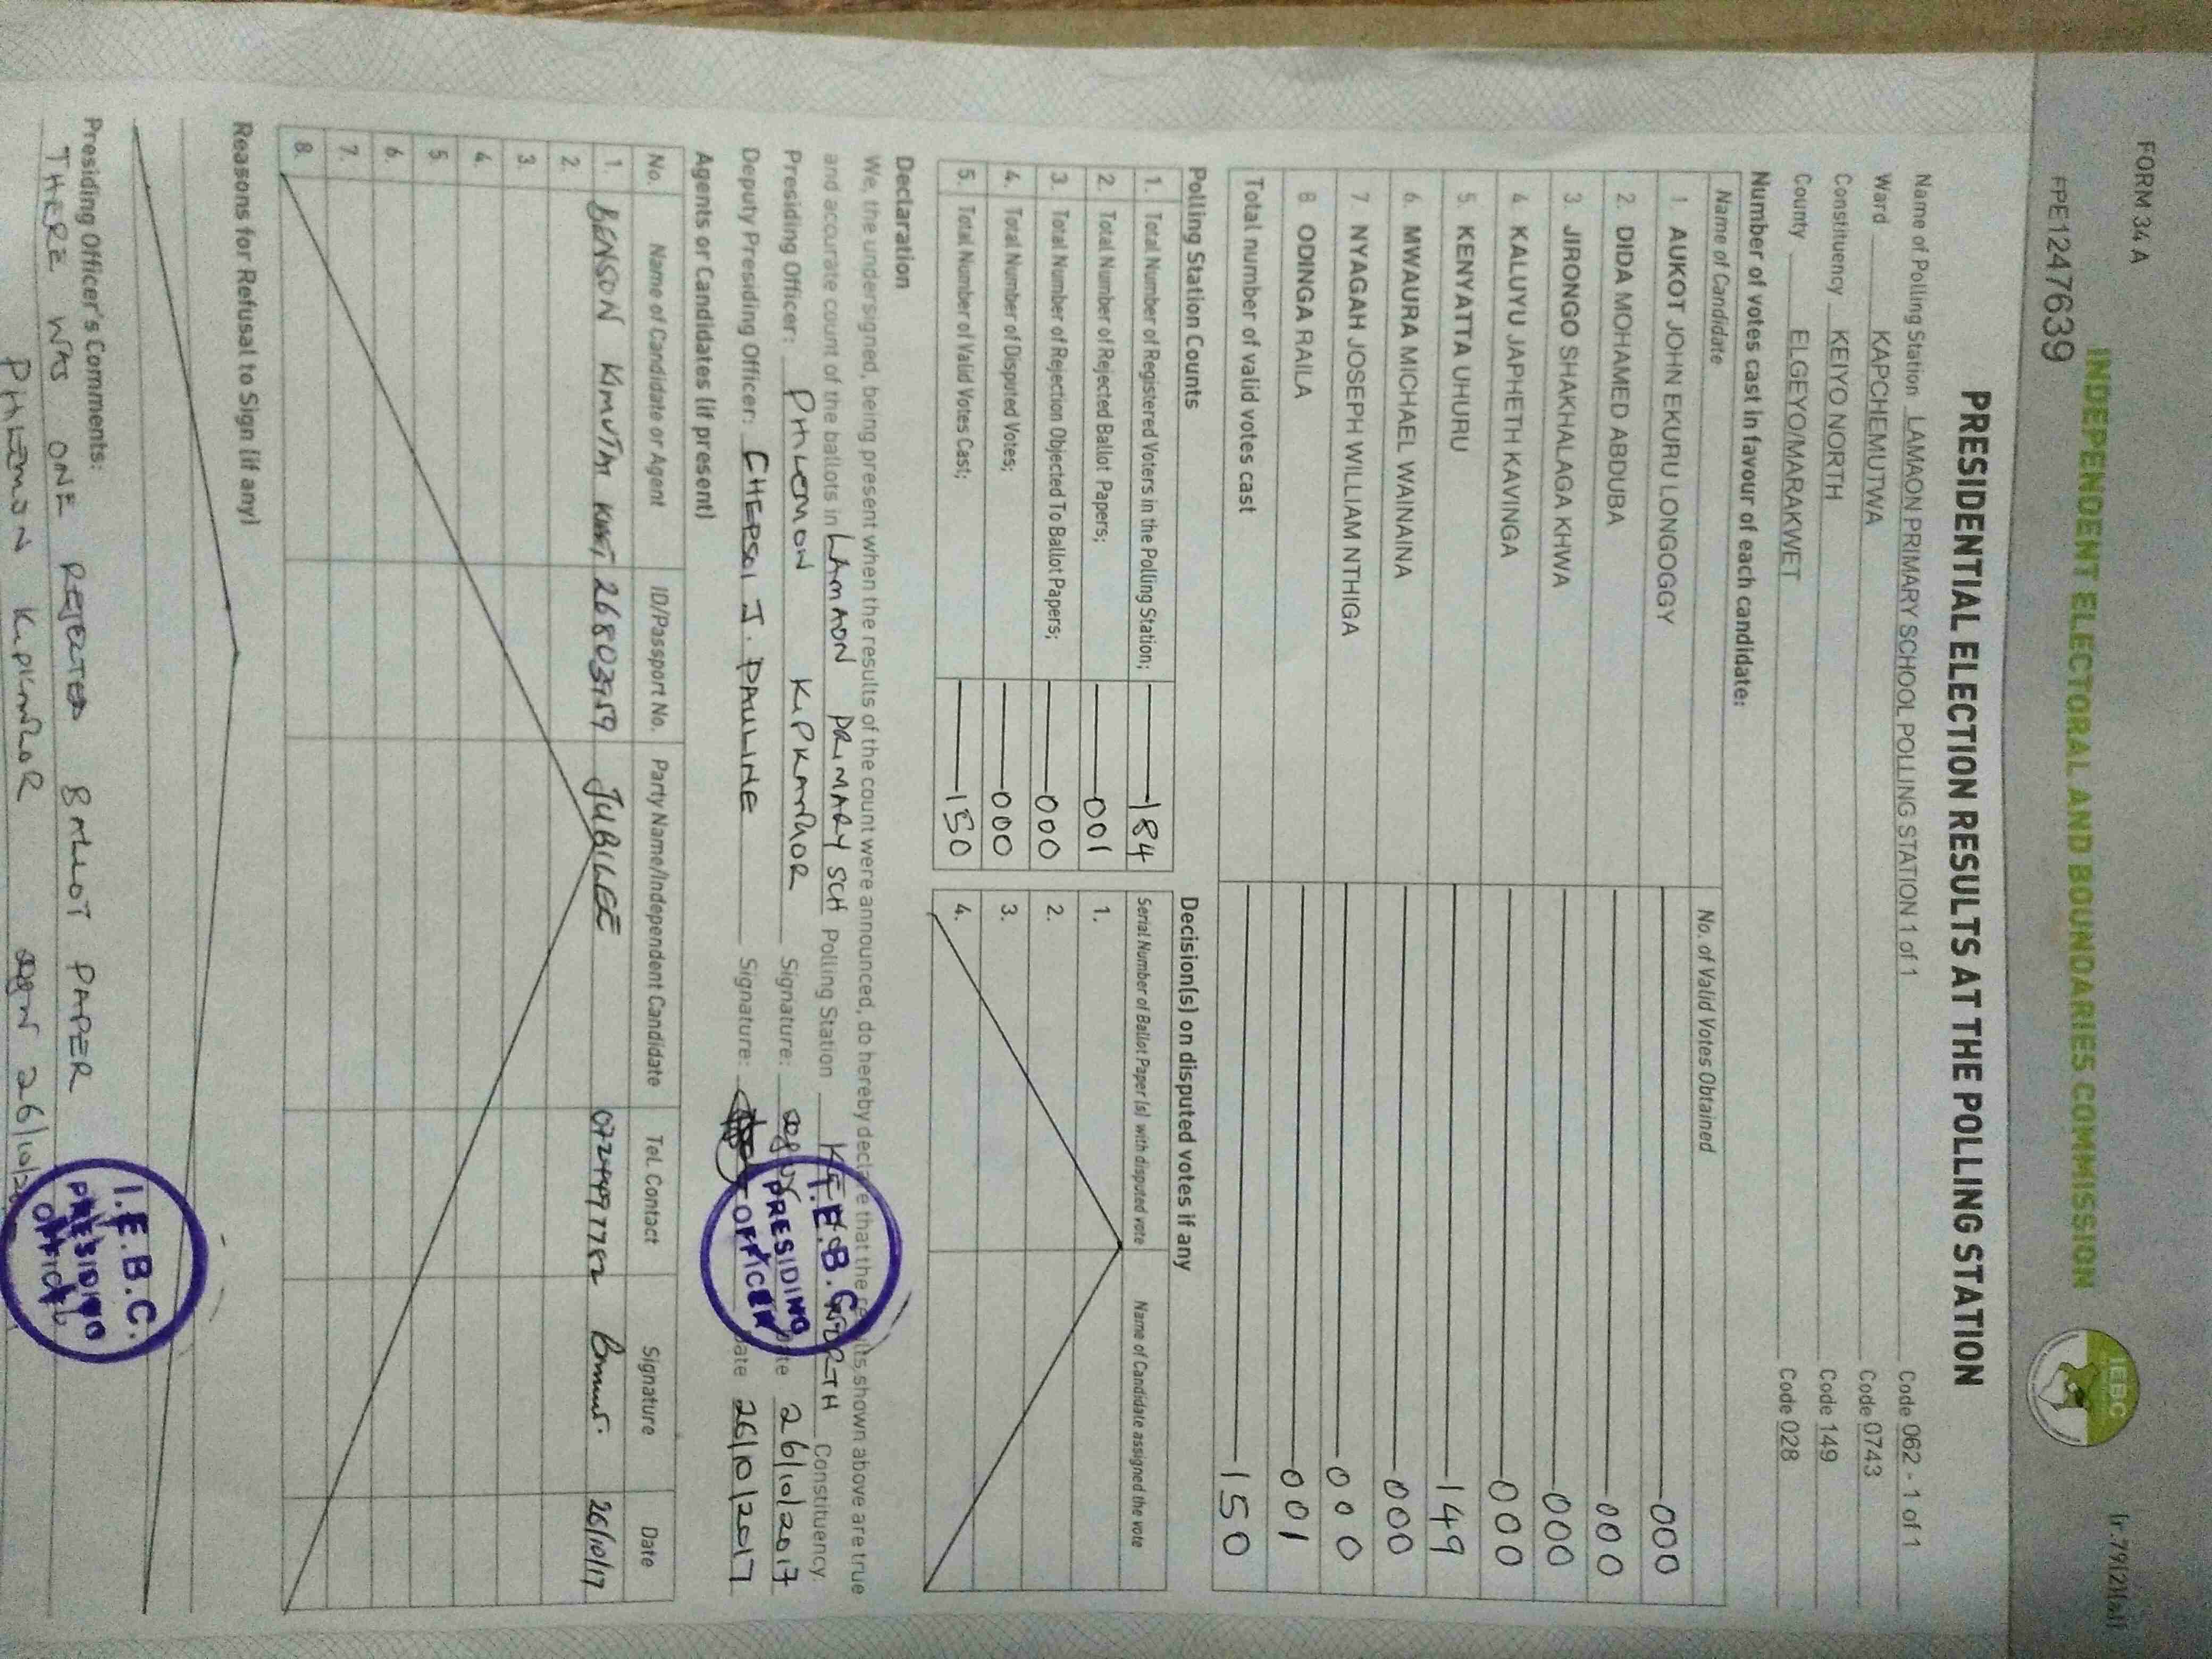 FORM 34 A
(r.79(2)(a))
INDEPENDENT ELECTORAL AND BOUNDARIES COMMISSION
IEBC
FPE1247639
PRESIDENTIAL ELECTION RESULTS AT THE POLLING STATION
Name of Polling Station LAMAON PRIMARY SCHOOL POLLING STATION 1 of 1 Code 062 - 1 of 1
Ward KAPCHEMUTWA Code 0743
Constituency KEIYO NORTH Code 149
County ELGEYO/MARAKWET Code 028
Number of votes cast in favour of each candidate:
Name of Candidate No. of Valid Votes Obtained
1. AUKOT JOHN EKURU LONGOGGY 000
2. DIDA MOHAMED ABDUBA 000
3. JIRONGO SHAKHALAGA KHWA 000
4. KALUYU JAPHETH KAVINGA 000
5. KENYATTA UHURU 149
6. MWAURA MICHAEL WAINAINA 000
7 NYAGAH JOSEPH WILLIAM NTHIGA 000
8 ODINGA RAILA 001
Total number of valid votes cast 150
Polling Station Counts
1. Total Number of Registered Voters in the Polling Station; 184
2. Total Number of Rejected Ballot Papers; 001
3. Total Number of Rejection Objected To Ballot Papers; 000
4. Total Number of Disputed Votes; 000
5. Total Number of Valid Votes Cast; 150
Decision(s) on disputed votes if any
Serial Number of Ballot Paper (s) with disputed vote Name of Candidate assigned the vote
1.
2.
3.
4.
Declaration
We, the undersigned, being present when the results of the count were announced, do hereby declare that the results shown above are true
and accurate count of the ballots in LAMAON PRIMARY SCH Polling Station KEIYO NORTH Constituency.
Presiding Officer: PHILEMON KIPKANHOR Signature: Date 26/10/2017
Deputy Presiding Officer: CHEPSOI J. PAULINE Signature: Date 26/10/2017
I.E.B.C.
PRESIDING
OFFICER
Agents or Candidates (if present)
No. Name of Candidate or Agent ID/Passport No. Party Name/Independent Candidate Tel. Contact Signature Date
1. BENSON KIMUTAI 26803959 JUBILEE 0724497782 26/10/17
2.
3
4
5
6.
7.
8.
Reasons for Refusal to Sign (if any)
Presiding Officer's Comments:
THERE WAS ONE REJECTED BALLOT PAPER
PHILEMON KIPKANHOR 26/10/20
I.E.B.C.
PRESIDING
OFFICER